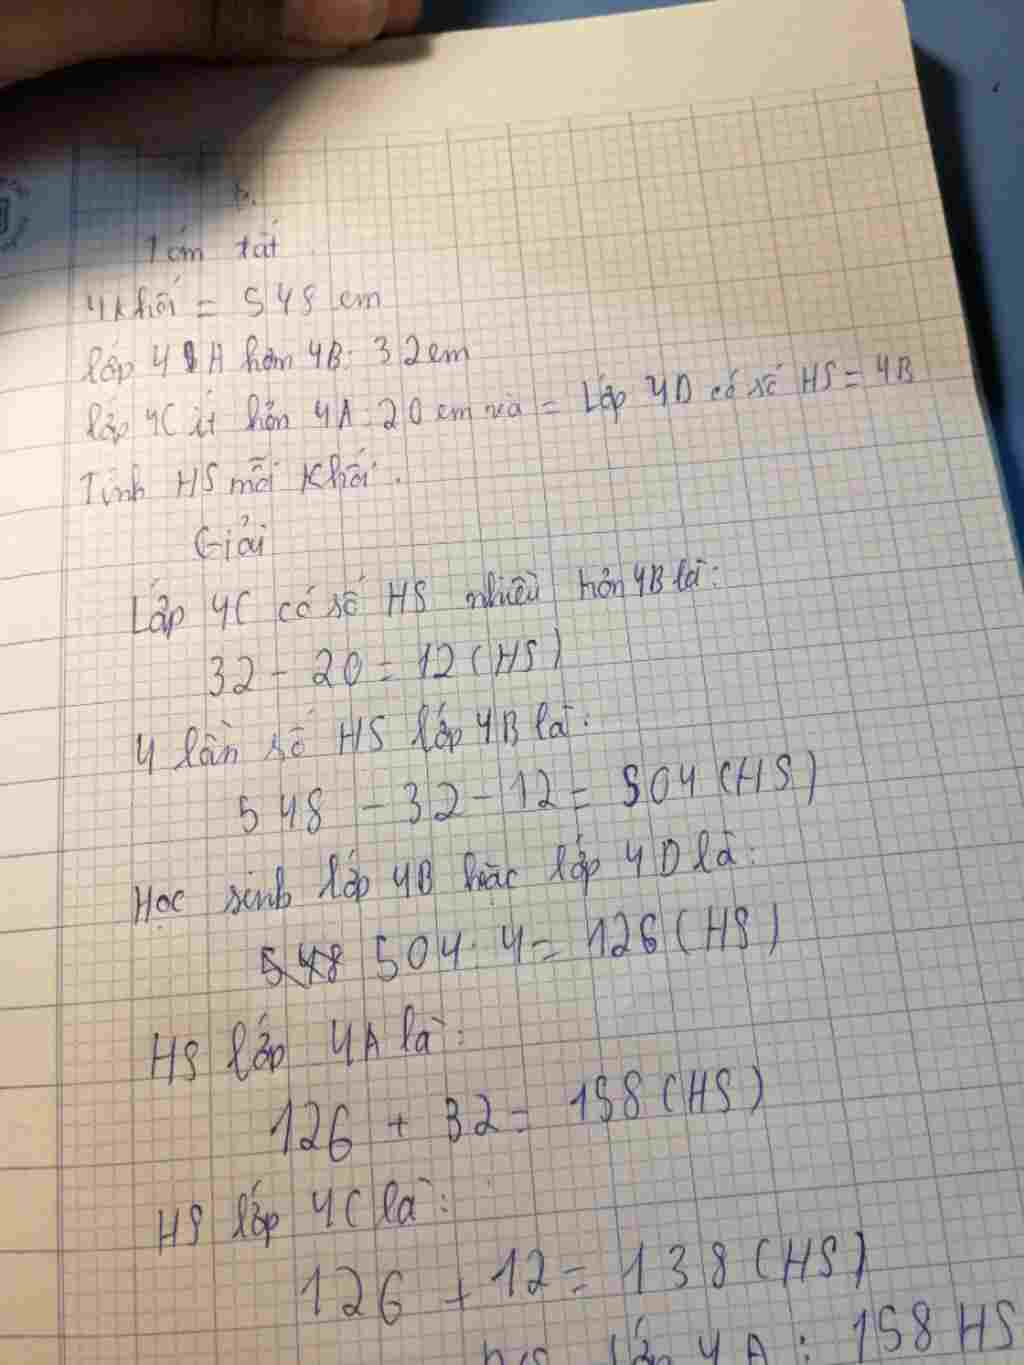 Tóm tắt
4 khối = 548 em
lớp 4A hơn 4B: 32 em
lớp 4C ít hơn 4A: 20 em và = Lớp 4D có số HS = 4B
Tính HS mỗi Khối.
Giải
Lớp 4C có số HS nhiều hơn 4B là:
32 - 20 = 12 (HS)
4 lần số HS lớp 4B là:
548 - 32 - 12 = 504 (HS)
Học sinh lớp 4B hoặc lớp 4D là:
548 504 : 4 = 126 (HS)
HS lớp 4A là:
126 + 32 = 158 (HS)
HS lớp 4C là:
126 + 12 = 138 (HS)
lớp 4A : 158 HS